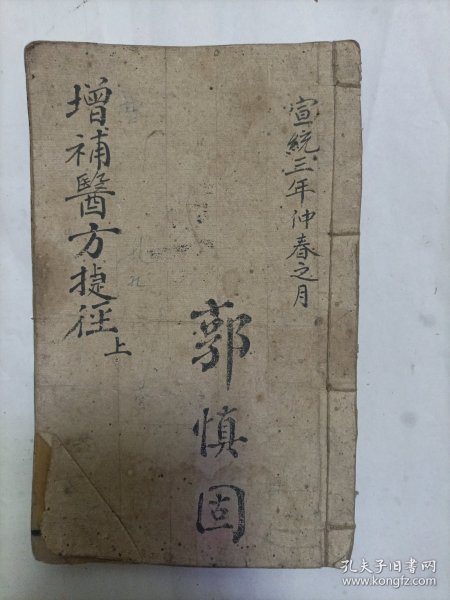 宣統三年仲春之月
郭慎固
增補醫方捷徑上
孔夫子旧书网
www.kongfz.com